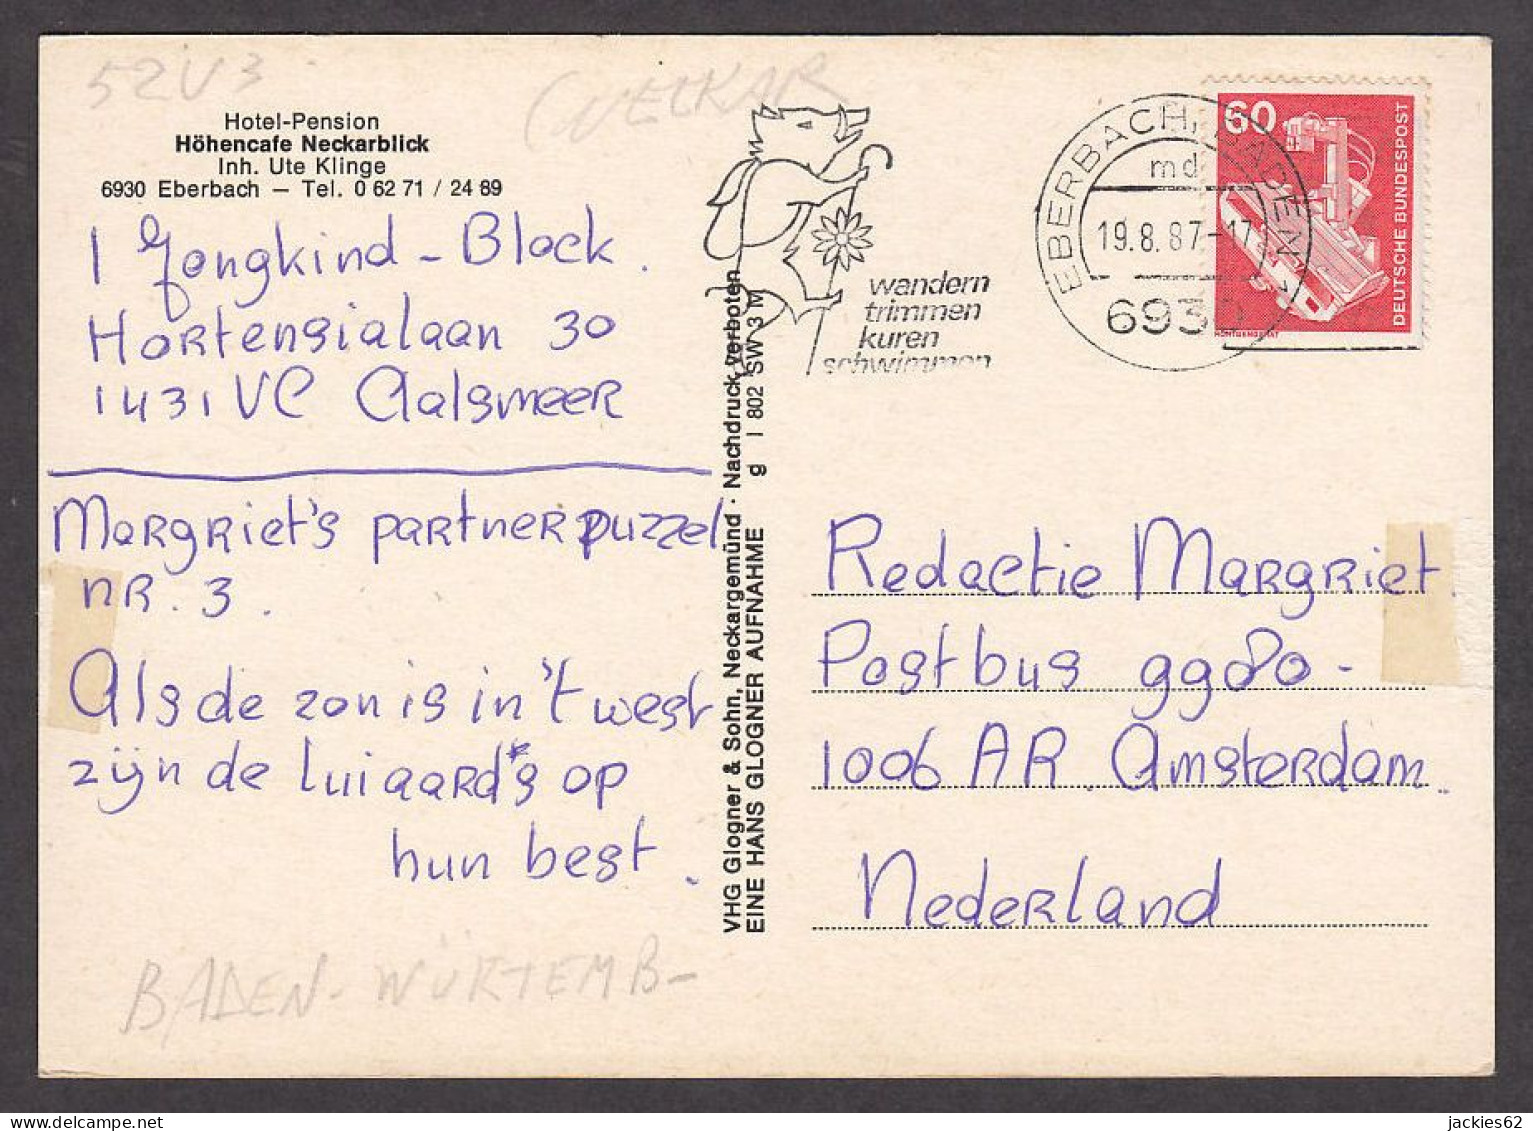 52V3
(NECKAR
Hotel-Pension
Höhencafe Neckarblick
Inh. Ute Klinge
6930 Eberbach — Tel. 0 62 71 / 24 89
I Jongkind - Block.
Hortensialaan 30
1431 VC Aalsmeer
Margriet's partnerpuzzel
nR. 3.
Als de zon is in 't west
zijn de luiaard's op
hun best.
BADEN-WÜRTEMB-
VHG Glogner & Sohn, Neckargemünd · Nachdruck verboten
EINE HANS GLOGNER AUFNAHME g I 802 SW 3 M
wandern
trimmen
kuren
schwimmen
EBERBACH, BADEN 1
md
19.8.87-17
6930
60
DEUTSCHE BUNDESPOST
RÖNTGENGERÄT
Redactie Margriet.
Postbus 9980-
1006 AR Amsterdam.
Nederland
jackies62